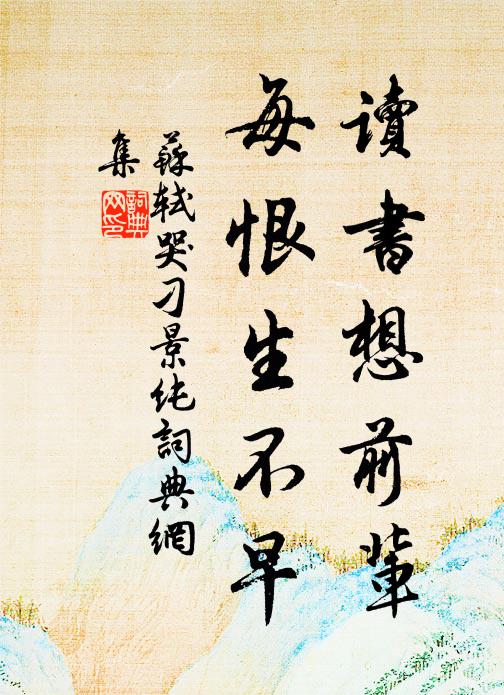 讀書想前輩
每恨生不早
蘇軾哭刁景纯詞典網
集
詞典
网印